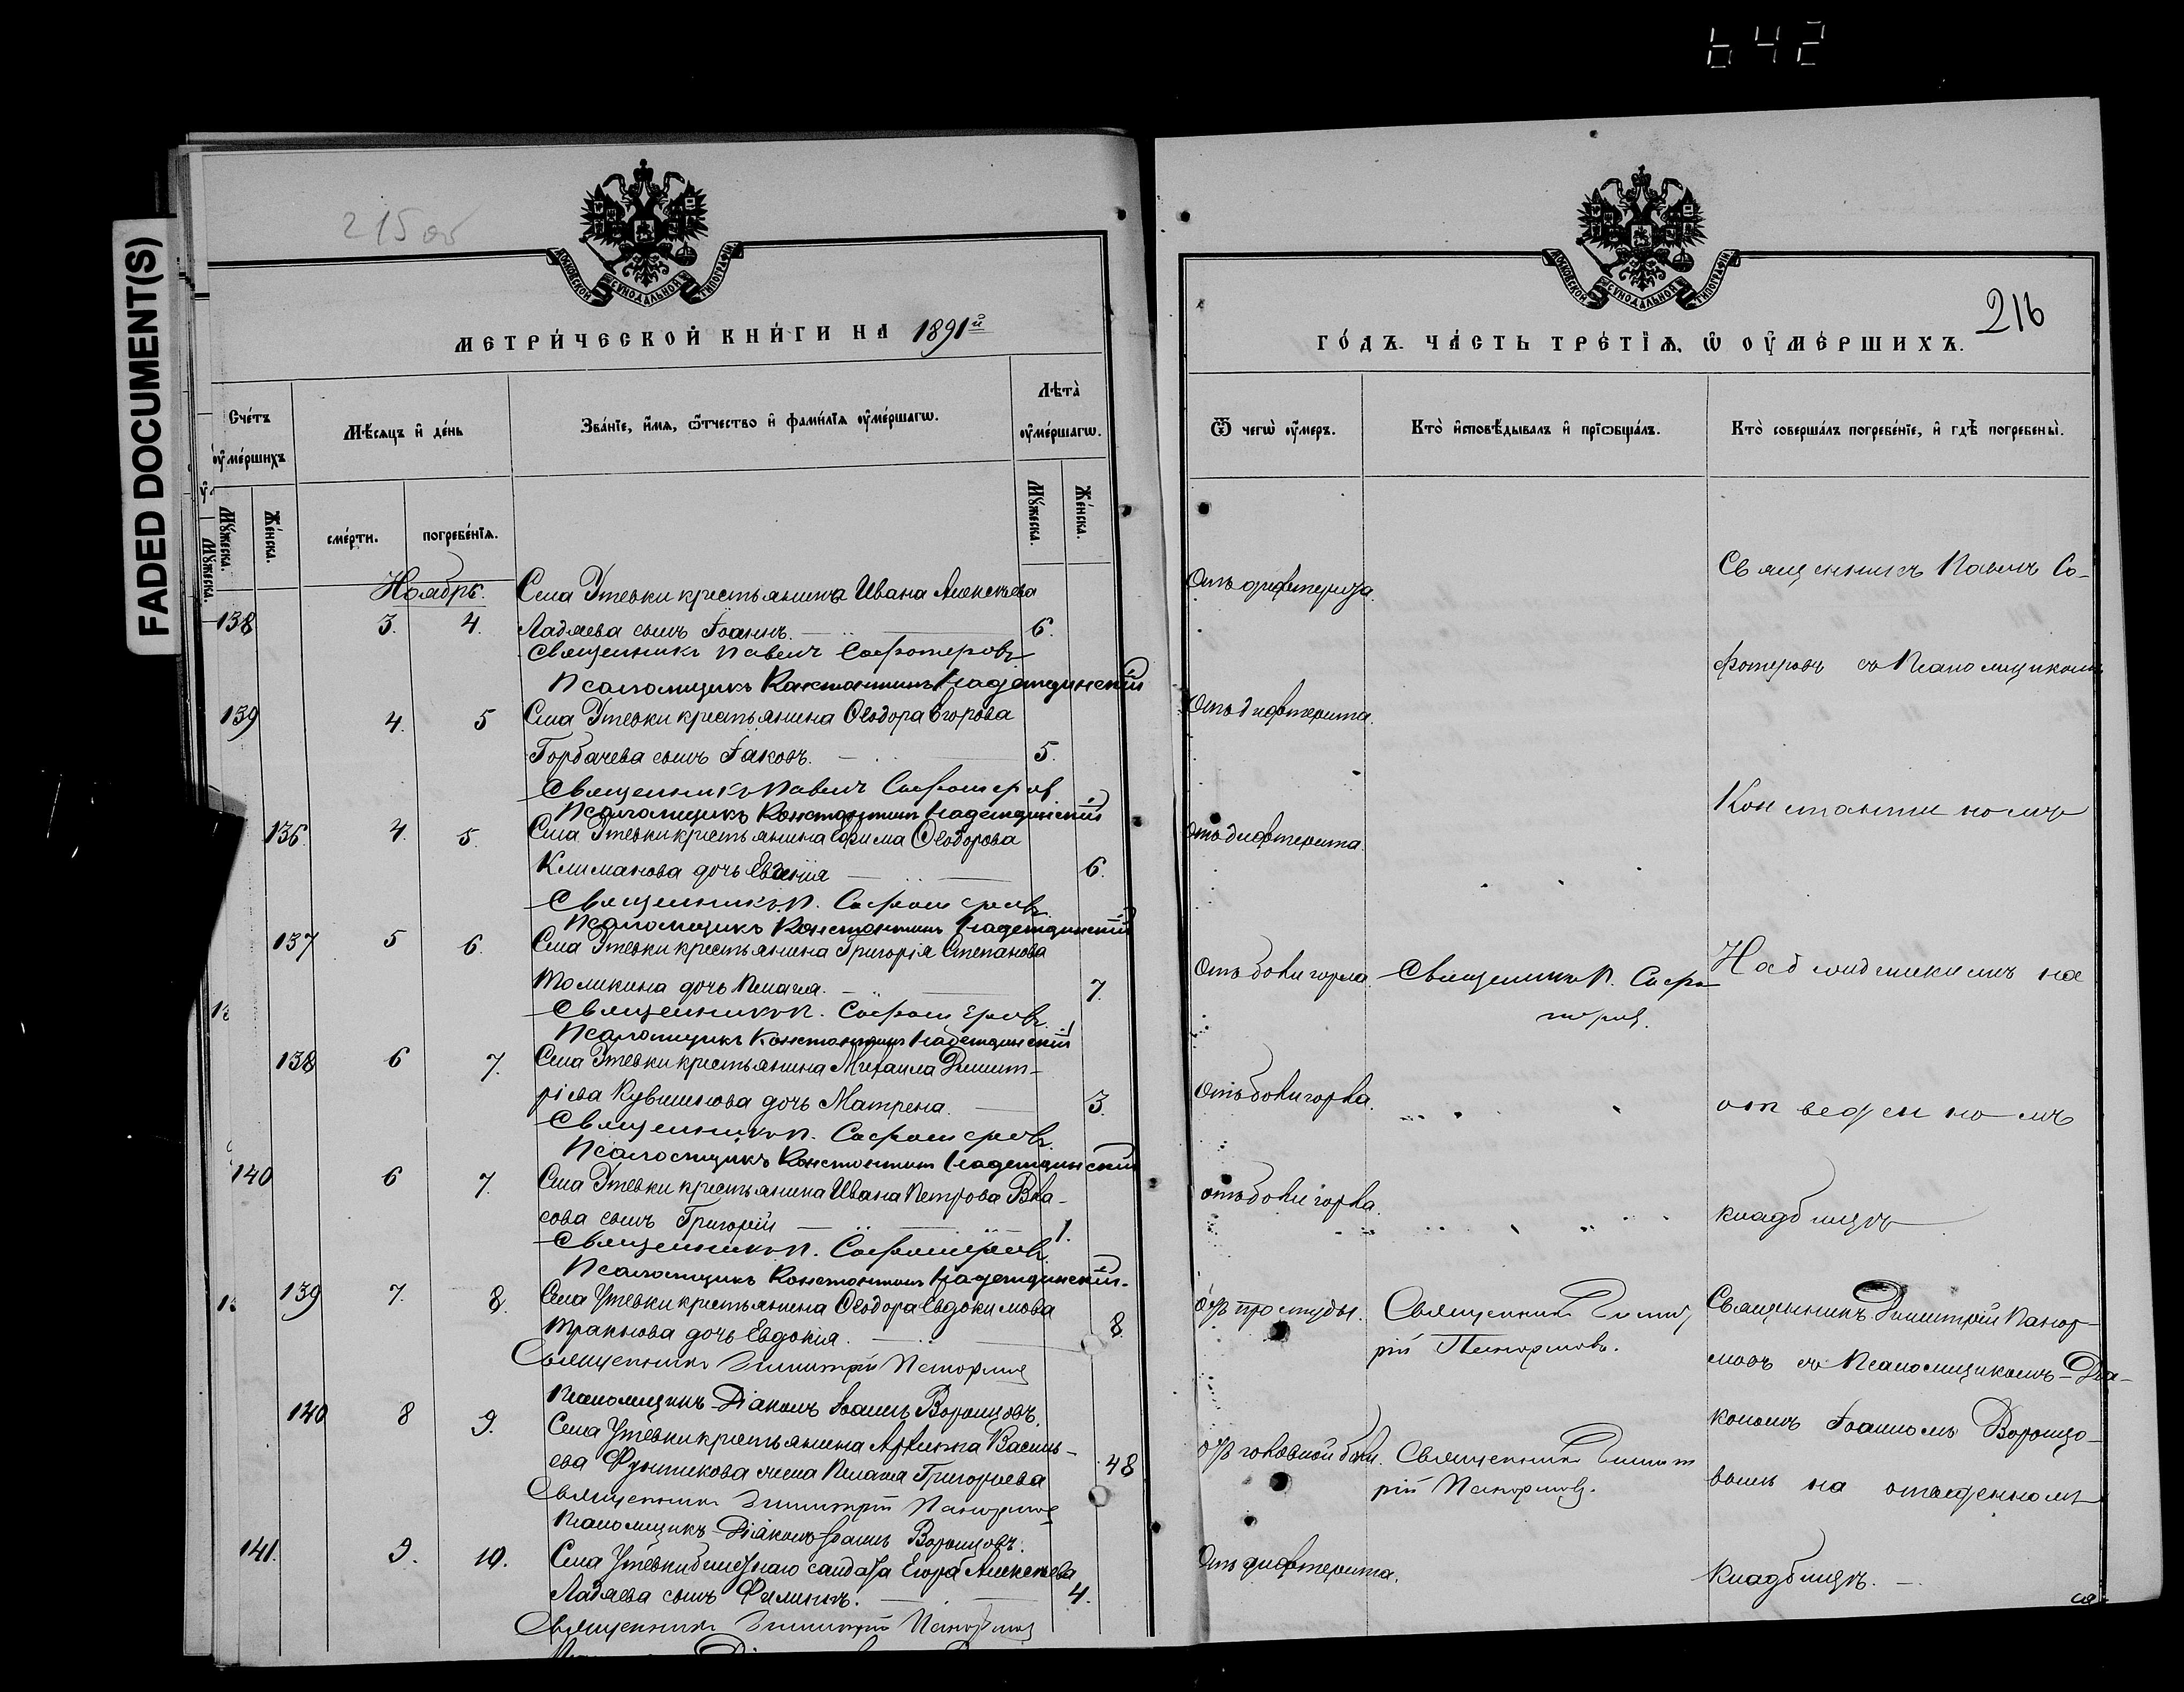 642
FADED DOCUMENT(S)
215 об
МОСКОВСКОЙ СѴНОДАЛЬНОЙ ТИПОГРАФІИ
МЕТРИ́ЧЕСКОЙ КНИ́ГИ НА 1891й
Сче́тъ оу҆ме́ршихъ
Мѣ́сѧцъ и҆ де́нь
Зва́нїе, и҆́мѧ, ѻ҆́тчество и҆ фами́лїѧ оу҆ме́ршагѡ.
Лѣта̀ оу҆ме́ршагѡ.
Мꙋ́жеска.
Же́нска.
сме́рти.
погребе́нїѧ.
Мꙋ́жеска.
Же́нска.
Ноябрь.
Села Утевки крестьянина Ивана Алексѣева
138 3. 4. Ладяева сынъ Іоаннъ. 6.
Священникъ Павелъ Сафотеровъ
Псаломщикъ Константинъ Надеждинскій
139 4. 5 Села Утевки крестьянина Ѳеодора Егорова
Горбачева сынъ Іаковъ. 5.
Священникъ Павелъ Сафотеров
Псаломщикъ Константинъ Надеждинскій
136 4. 5. Села Утевки крестьянина Ефима Ѳеодорова
Климанова дочь Евгенія 6.
Священникъ П. Сафотеровъ
Псаломщикъ Константинъ Надеждинскій
137 5 6. Села Утевки крестьянина Григорія Степанова
Толикина дочь Пелагея. 7.
Священникъ П. Сафотеровъ.
Псаломщикъ Константинъ Надеждинскій
138 6 7. Села Утевки крестьянина Михаила Димит-
ріева Кувшинова дочь Матрена. 3.
Священникъ П. Сафотеровъ
Псаломщикъ Константинъ Надеждинскій
140 6 7. Села Утевки крестьянина Ивана Петрова Вла-
сова сынъ Григорій 1.
Священникъ П. Сафотеровъ
Псаломщикъ Константинъ Надеждинскій.
139 7. 8. Села Утевки крестьянина Ѳеодора Евдокимова
дочь Евдокія. 8
Священникъ Димитрій Панормов
Псаломщикъ-Діаконъ Іоаннъ Воронцовъ.
140 8 9. Села Утевки крестьянина Архипа Василь-
ева Фунтикова жена Пелагея Григорьева 48
Священникъ Димитрій Панормов
Псаломщикъ-Діаконъ Іоаннъ Воронцовъ.
141. 9. 10. Села Утевки солдата Егора Алексѣева
Ладяева сынъ Филиппъ. 4.
Священникъ Димитрій Панормов
МОСКОВСКОЙ СѴНОДАЛЬНОЙ ТИПОГРАФІИ
216
ГО́ДЪ. ЧА́СТЬ ТРЕ́ТЇѦ, Ѡ҆ ОУ҆МЕ́РШИХЪ.
Ѿ чегѡ̀ оу҆́меръ.
Кто̀ и҆сповѣ́дывалъ и҆ прїѡбща́лъ.
Кто̀ соверша́лъ погребе́нїе, и҆ гдѣ̀ погребены̀.
Отъ дифтерита.
Священникъ Павелъ Са-
фотеровъ съ Псаломщикомъ
Отъ дифтерита.
Константиномъ
Отъ дифтерита.
Отъ боли горла. Священникъ П. Сафо-
теров.
Надеждинскимъ на
Отъ боли горла.
отведенномъ
отъ боли горла.
кладбищѣ
отъ простуды. Священникъ Димит
рій Панормовъ.
Священникъ Димитрій Панор-
мовъ съ Псаломщикомъ-Діа-
кономъ Іоанномъ Воронцо-
отъ головной боли. Священникъ Димит
рій Панормовъ.
вымъ на отведенномъ
Отъ дифтерита.
кладбищѣ.